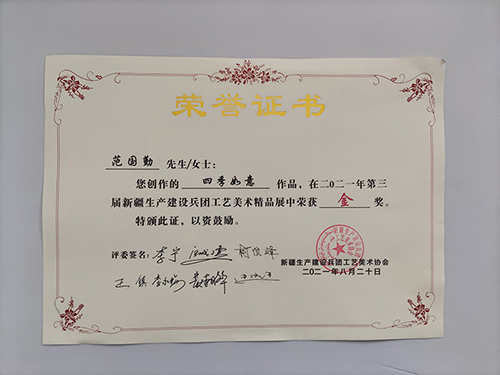 荣誉证书
范国勤 先生/女士：
您创作的 四季如意 作品，在二〇二一年第三
届新疆生产建设兵团工艺美术精品展中荣获 金 奖。
特颁此证，以资鼓励。
评委签名：李宁
新疆生产建设兵团工艺美术协会
二〇二一年八月二十日